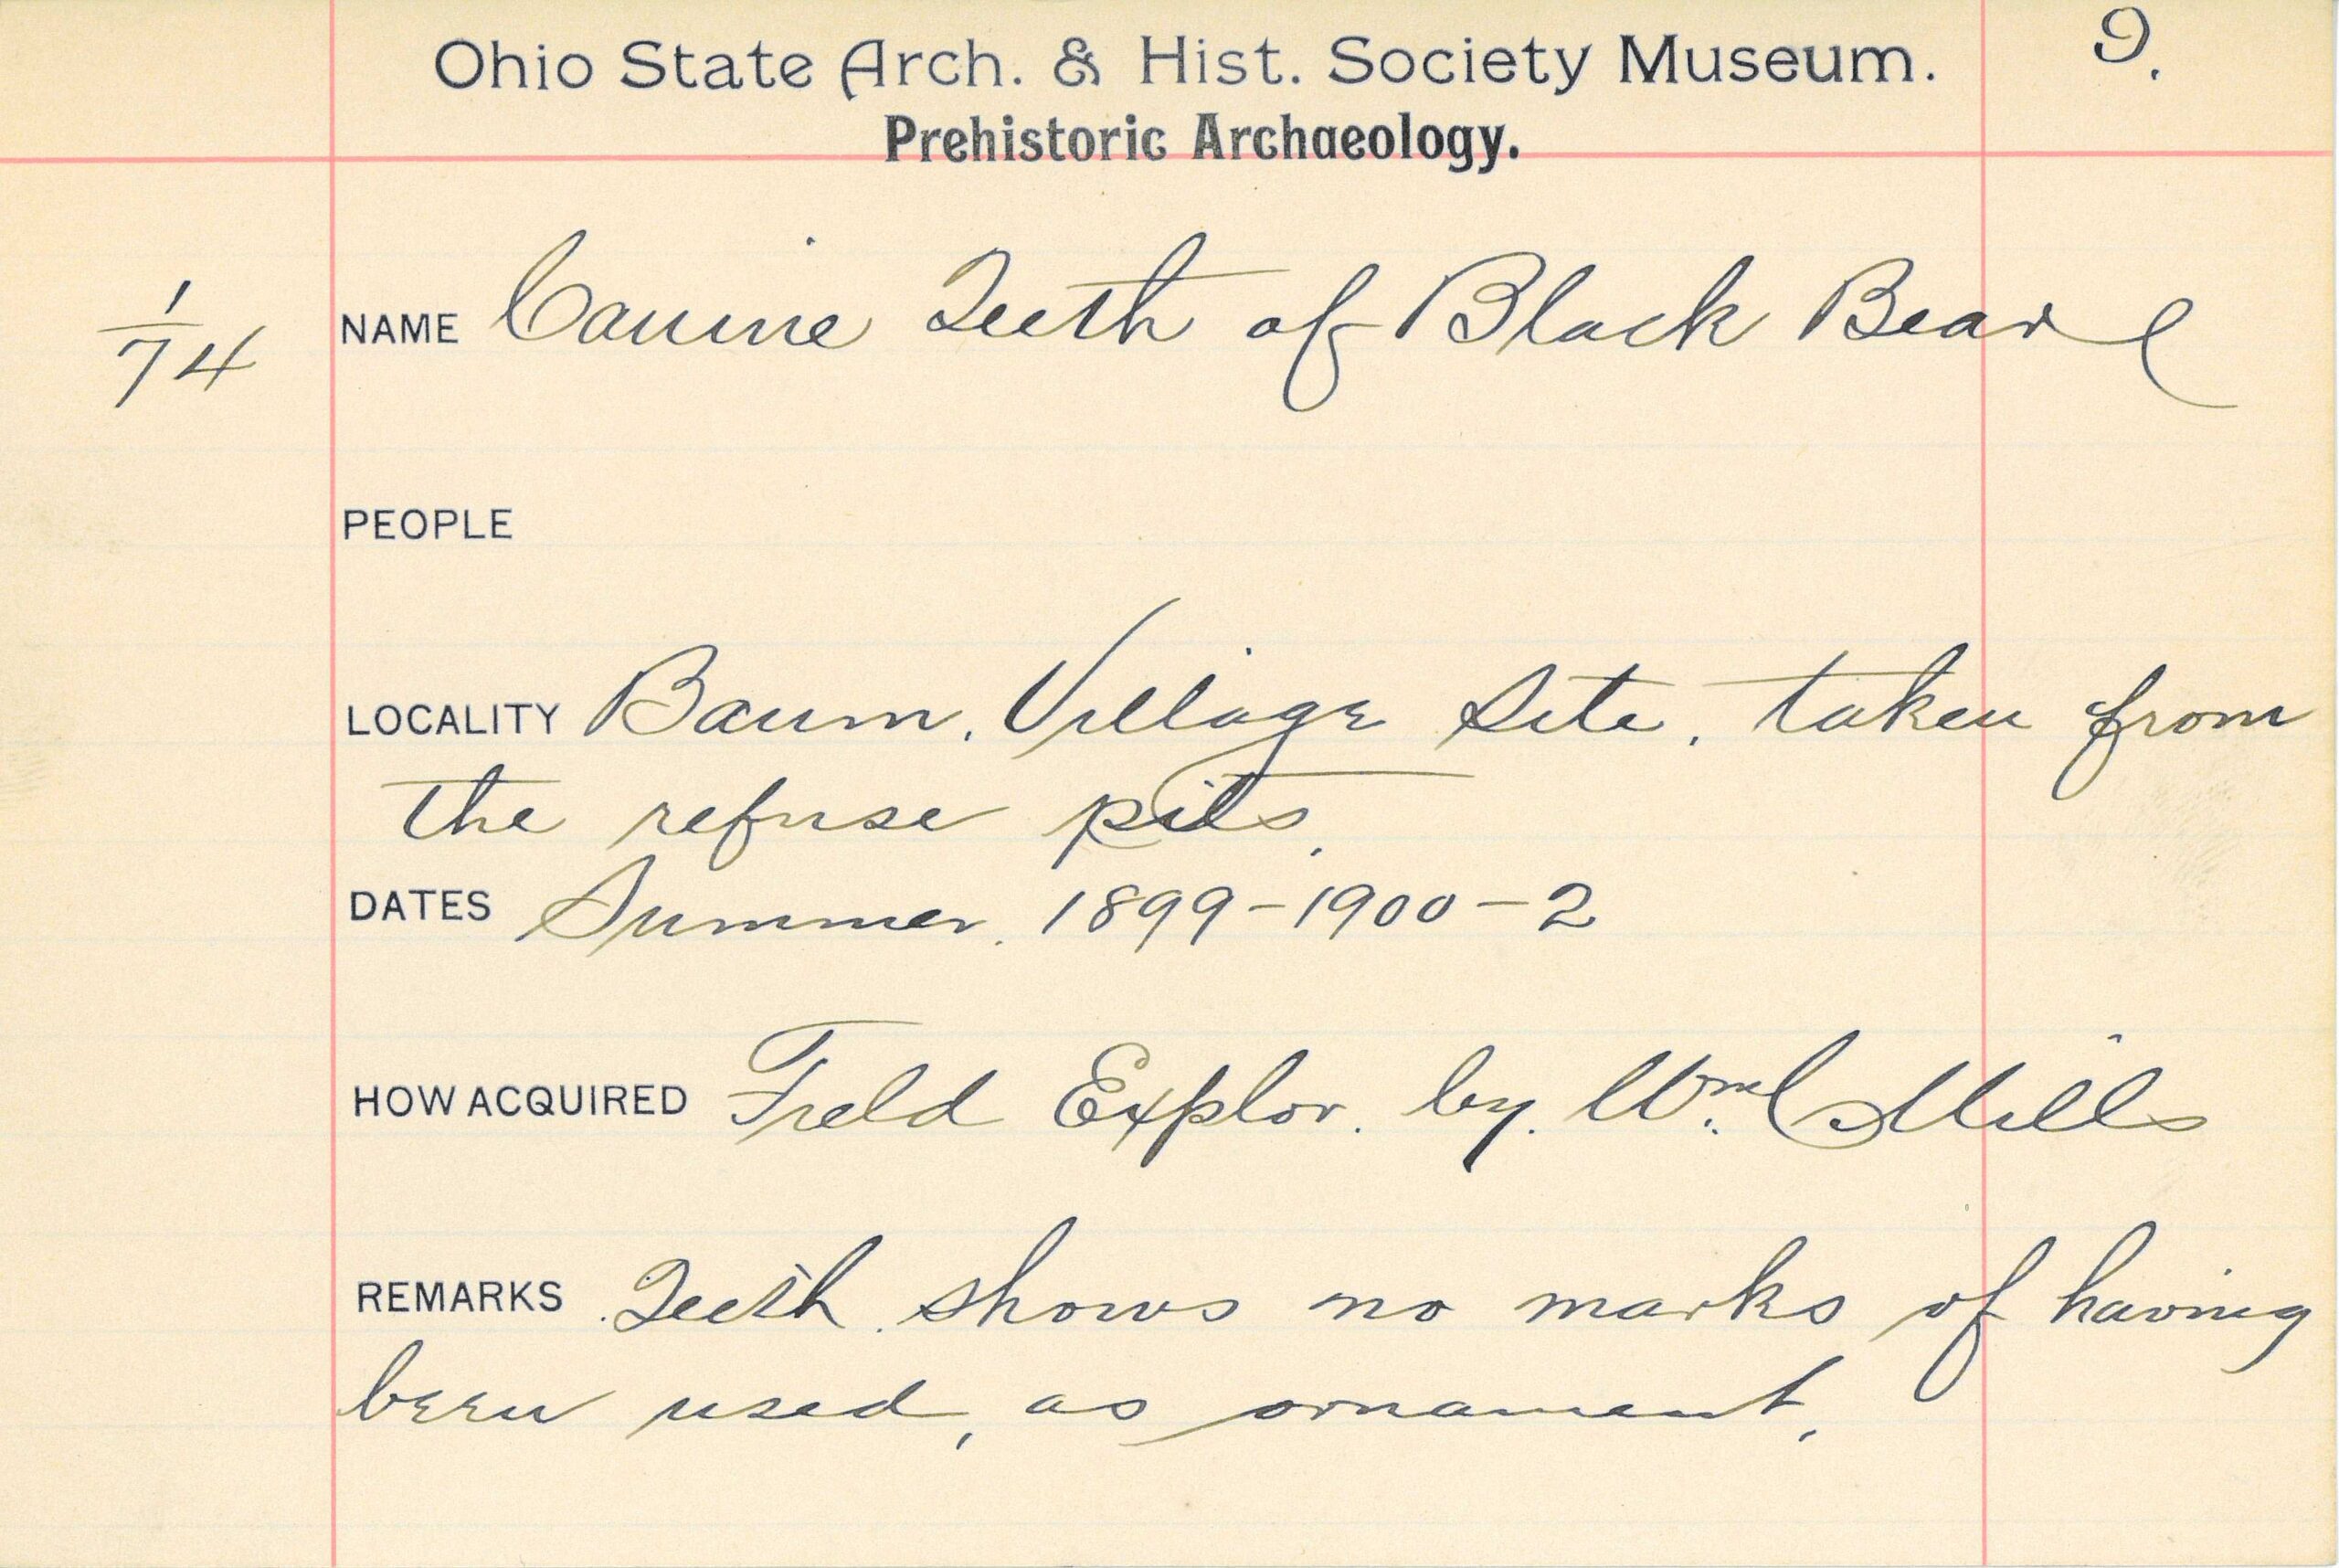 Ohio State Arch. & Hist. Society Museum. 9.
Prehistoric Archaeology.
1/74 NAME Canine Teeth of Black Bear
PEOPLE
LOCALITY Baum. Village Site. taken from
the refuse pits.
DATES Summer. 1899-1900-2
HOW ACQUIRED Field Explor. by. Wm. C Mills
REMARKS Teeth shows no marks of having
been used, as ornament.